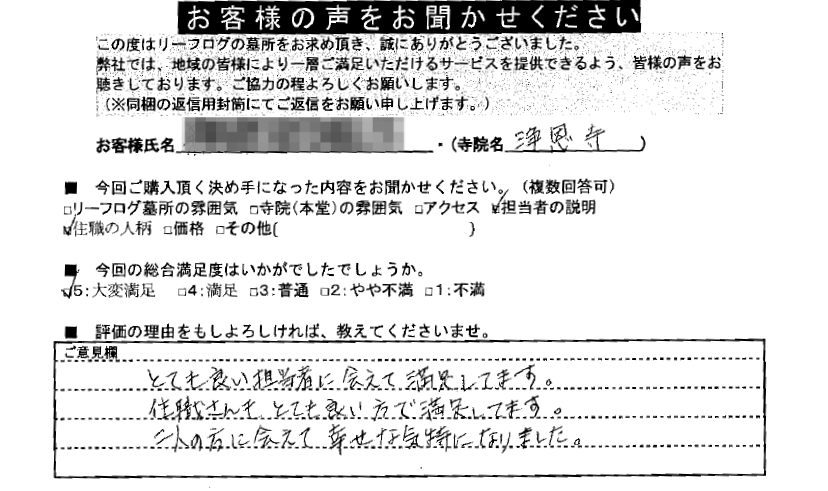 お客様の声をお聞かせください
この度はリーフログの墓所をお求め頂き、誠にありがとうございました。
弊社では、地域の皆様により一層ご満足いただけるサービスを提供できるよう、皆様の声をお
聴きしております。ご協力の程よろしくお願いします。
(※同梱の返信用封筒にてご返信をお願い申し上げます。)
お客様氏名 ・(寺院名 浄恩寺 )
■ 今回ご購入頂く決め手になった内容をお聞かせください。(複数回答可)
□リーフログ墓所の雰囲気 □寺院(本堂)の雰囲気 □アクセス ☑担当者の説明
☑住職の人柄 □価格 □その他( )
■ 今回の総合満足度はいかがでしたでしょうか。
☑5:大変満足 □4:満足 □3:普通 □2:やや不満 □1:不満
■ 評価の理由をもしよろしければ、教えてくださいませ。
ご意見欄
とても良い担当者に会えて満足してます。
住職さんも、とても良い方で満足してます。
二人の方に会えて幸せな気持になりました。